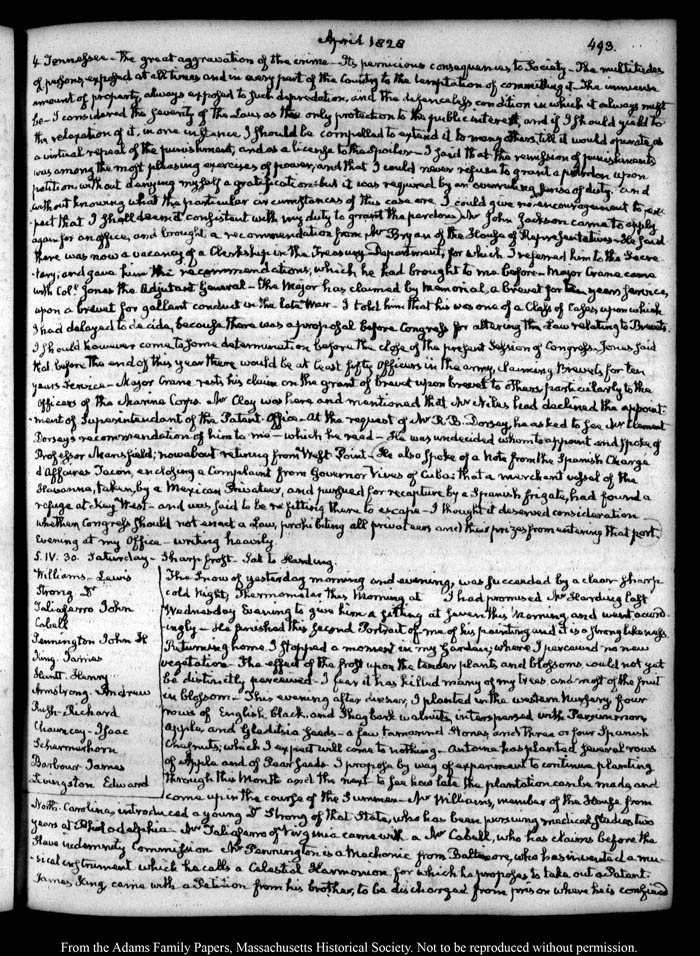 April 1828
493.
4 Tennessee – the great aggravation of the crime – Its pernicious consequences to Society – The multitudes
of persons, exposed at all times and in every part of the Country to the temptation of committing it. The immense
amount of property always exposed to such depredation, and the defenceless condition in which it always must
be – I considered the severity of the Law as the only protection to the public interest, and if I should yield to
the relaxation of it, in one instance, I should be compelled to extend it to many others till it would operate as
a virtual repeal of the punishment, and as a license to the spoiler – I said that the remission of punishments
was among the most pleasing exercises of power, and that I could never refuse to grant a pardon upon
petition, without denying myself a gratification – but it was required by an overruling sense of duty. and
without knowing what the particular circumstances of this case are, I could give no encouragement to ex-
pect that I shall deem it consistent with my duty to grant the pardon – Mr John Jackson came to apply
again for an office, and brought a recommendation from Mr Bryan of the House of Representatives – He said
there was now a vacancy of a Clerkship in the Treasury Department, for which I referred him to the Secre-
tary; and gave him the recommendations, which he had brought to me before – Major Crane came
with Col. Jones the Adjutant General – The Major has claimed by Memorial, a brevet for ten years service,
upon a brevet for gallant conduct in the late War – I told him that his was one of a Class of Cases, upon which
I had delayed to decide, because there was a proposal before Congress for altering the Law relating to Brevets.
I should however come to some determination before the close of the present Session of Congress. Jones said
that before the end of this year there would be at least fifty Officers in the army, claiming Brevets for ten
years service – Major Crane rests his claim on the grant of brevet upon brevet to others, particularly to the
Officers of the Marine Corps. Mr Clay was here and mentioned that Mr Niles had declined the appoint-
ment of Superintendant of the Patent Office – At the request of Mr R. B. Dorsey, he asked to see Mr Clement
Dorsey's recommendation of him to me – which he read – He was undecided whom to appoint and spoke of
Professor Mansfield; now about retiring from West Point – He also spoke of a Note from the Spanish Chargé
d'Affaires Tacon, enclosing a Complaint from Governor Vives of Cuba: that a merchant vessel of the
Havanna, taken by a Mexican Privateer, and pursued for recapture by a Spanish frigate, had found a
refuge at Key West – and was said to be refitting there to escape – I thought it deserved consideration
whether Congress should not enact a Law, prohibiting all privateers and their prizes from entering that port.
Evening at my Office – writing heavily.
5. IV: 30. Saturday – Sharp frost – Sat to Harding.
Williams – Lewis
Strong Dr
Taliaferro John
Cabell
Pennington John H
King. James
Hunt. Henry
Armstrong. Andrew
Rush – Richard
Chauncey – Isaac
Schermerhorn
Barbour James
Livingston Edward
The Snow of yesterday morning and evening, was succeeded by a clear sharp
cold Night, Thermometer this Morning at I had promised Mr Harding last
Wednesday Evening to give him a sitting at seven this Morning, and went accord-
ingly – He finished this second Portrait of me of his painting and it is a strong likeness.
Returning home I stopped a moment in my Garden, where I perceived no new
vegetation – The effect of the frost upon the tender plants and blossoms, could not yet
be distinctly perceived – I fear it has killed many of my trees and most of the fruit
in blossom – This evening after dinner, I planted in the western Nursery, four
rows of English, black, and Shagbark walnuts, interspersed with Persimmon,
apple, and Gleditsia seeds – a few tamarind Stones, and three or four Spanish
Chesnuts; which I expect will come to nothing – Antoine has planted several rows
of Apple and of Pear Seeds – I propose by way of experiment to continue planting
through this Month and the next to see how late the plantation can be made and
come up in the course of the Summer – Mr Williams, member of the House from
North-Carolina, introduced a young Dr Strong of that State, who has been pursuing medical studies two
years at Philadelphia – Mr Taliaferro of Virginia came with a Mr Cabell, who has claims before the
Slave indemnity Commission Mr Pennington is a Mechanic from Baltimore, who has invented a mu-
sical instrument which he calls a Celestial Harmonicon, for which he proposes to take out a Patent.
James King, came with a Petition from his brother, to be discharged from prison where he is confined
From the Adams Family Papers, Massachusetts Historical Society. Not to be reproduced without permission.